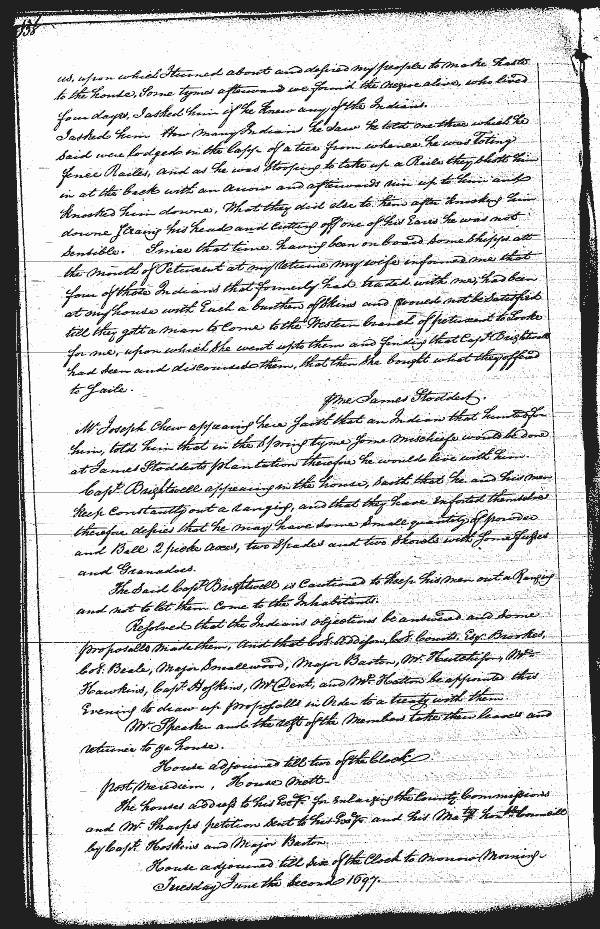 us, upon which I turned about and desired my people to make haste
to the house, Some tyme afterward we found the negroe alive, who lived
four days, I asked him if he knew any of the Indians.
I asked him How many Indians he saw he told me three which he
said were lodged in the Capp of a tree from whence he was Toting
fence Railes, and as he was Stooping to take up a Raile they shott him
in at the back with an arrow and afterwards run up to him and
knocked him downe, What they did else to him after knocking him
downe fleaing his head and Cutting off one of his Eares he was not
Sensible. Since that time having been on board some Shipps att
the mouth of Petuxent at my returne my wife informed me that
four of those Indians that formerly had traded with me, had been
at my house with Each a burthen of Skins and would not be Satisfied
till they gott a man to Come to the Western branch of petuxent to Looke
for me, upon which she went upto them and finding that Capt Brightwell
had seen and discoursed them, that then she bought what they offered
to Saile.
⅌ me James Stoddert.
Mr Joseph Chew appearing here Saith that an Indian that hunted for
him, told him that in the Spring tyme some mischeife would be done
at James Stodderts plantation therefore he would live with him.
Capt Brightwell appearing in the house, saith that he and his men
keep Constantly out a ranging, and that they have inforted themselves
therefore desires that he may have some small quantity of powder
and Ball 2 picke axes, two Spades and two Shovels with some fuzees
and Granadoes.
The said Capt Brightwell is Cautioned to keep his men out a Ranging
and not to let them come to the Inhabitants.
Resolved that the Indians objections be answered and some
proposalls made them, And that Col. Addison, Col. Courts, Esqr Brookes,
Col. Beale, Major Smallwood, Major Barton, Mr Hutchison, Mr
Hawkins, Capt Hoskins, Mr Dent, and Mr Hatton be appointed this
Evening to draw up proposalls in Order to a treaty with them
Mr Speaker and the rest of the Members take their leaves and
returne to ye house.
House adjourned till two of the Clock
post Meridiem, House mett
The houses address to his Excy for Enlarging the County Commissions
and Mr Sharps petition Sent to his Excy and his Matys honble Councill
by Capt Hoskins and Major Barton
House adjourned till six of the Clock to morrow Morning.
Tuesday June the Second 1697.